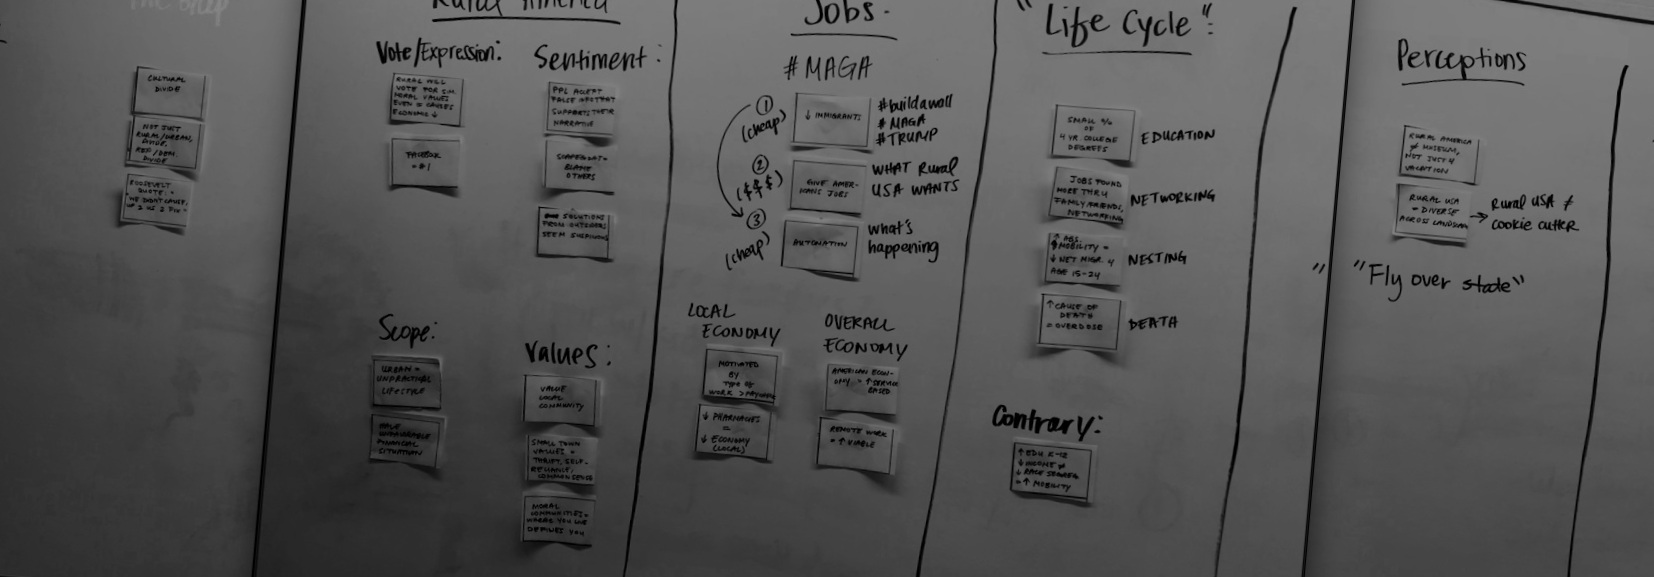 The Gap
CULTURAL
DIVIDE
NOT JUST
RURAL/URBAN
DIVIDE,
REP/DEM.
DIVIDE
ROOSEVELT
QUOTE:
Rural America
Vote/Expression:
RURAL WILL
VOTE FOR
MORAL VALUES
EVEN = CAUSES
ECONOMIC ↓
FACEBOOK
= #1
Sentiment:
PPL ACCEPT
SUPPORTS THEIR
NARRATIVE
BLAME
OTHERS
SOLUTIONS
FROM OUTSIDERS
SEEM SUSPICIOUS
Scope:
URBAN =
UNPRACTICAL
LIFESTYLE
FINANCIAL
SITUATION
Values:
VALUE
LOCAL
COMMUNITY
SMALL TOWN
VALUES =
THRIFT, SELF-
RELIANCE,
COMMON SENSE
MORAL
COMMUNITIES =
WHERE YOU LIVE
DEFINES YOU
Jobs.
#MAGA
① (cheap)
↓ IMMIGRANTS
#buildawall
#MAGA
#TRUMP
② ($$$)
GIVE AMER-
ICANS JOBS
WHAT Rural
USA WANTS
③ (cheap)
AUTOMATION
what's
happening
LOCAL
ECONOMY
MOTIVATED
BY
TYPE OF
WORK > PAYOFF
↓ PHARMACIES
=
↓ ECONOMY
(LOCAL)
OVERALL
ECONOMY
AMERICAN ECON-
OMY = ↑ SERVICE
BASED
REMOTE WORK
= ↑ VIABLE
"Life Cycle":
SMALL %
OF
4 YR COLLEGE
DEGREES
EDUCATION
JOBS FOUND
MORE THRU
FAMILY/FRIENDS,
NETWORKING
NETWORKING
↑ ABS.
MOBILITY =
↓ NET MIGR. 4
AGE 15-24
NESTING
↑ CAUSE OF
DEATH
= OVERDOSE
DEATH
Contrary:
↑ EDU K-12
↓ INCOME ≠
↓ RACE
= ↑ MOBILITY
Perceptions
RURAL AMERICA
≠ MUSEUM,
NOT JUST 4
VACATION
RURAL USA
= DIVERSE
ACROSS LANDSCAPE
→ Rural USA ≠
cookie cutter
"Fly over state"